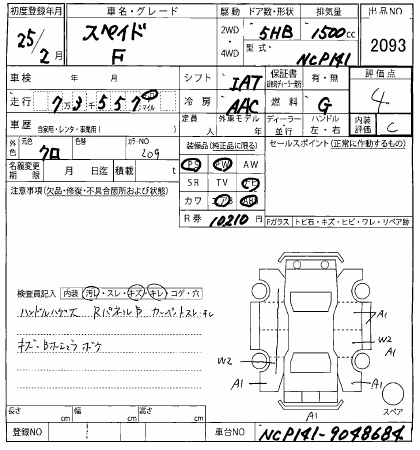 初度登録年月 車名・グレード 駆動 ドア数・形状 排気量 出品NO
25/2月 スペイド F 2WD・4WD 5HB 1500cc 2093
型式 NCP141
車検 年 月 シフト IAT 保証書 有・無 評価点 4
走行 7万3千557 km マイル 冷房 AAC 燃料 G
車歴 自家用・レンタ・事業用( ) 定員 人 外車モデル 年 ディーラー・並行 ハンドル 左・右 内装評価 C
外色 元色 クロ 色替 カラーNO 209 装備品(純正品に限る) セールスポイント(正常に作動するもの)
名義変更期限 月 日迄 積載 t PS PW AW
注意事項(欠品・修復・不具合箇所および状態) SR TV
カワ エアB
R券 10210円 Fガラス トビ石・キズ・ヒビ・ワレ・リペア跡
検査員記入 内装 汚レ・スレ・キズ・キレ コゲ・穴
RパネルB カーペットスレ・キレ
A1
W2
A1
W2
A1 A1
A1
スペア
長さ cm 幅 cm 高さ cm
登録NO 車台NO NCP141-9048684